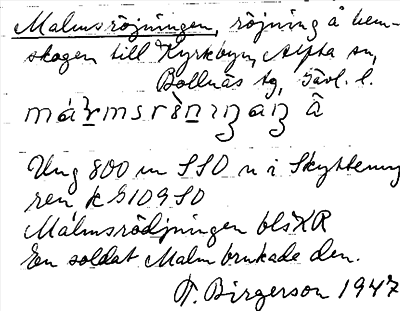 Malmsröjningen, röjning å hem-
skogen till Kyrkbyn, Alfta sn,
Bollnäs tg, Gävl. l.
å
Ung 800 m SSO n i Skyttemy
ren k G109 SO
Malmsrödjningen blsKR
En soldat Malm brukade den.
T. Birgerson 1947